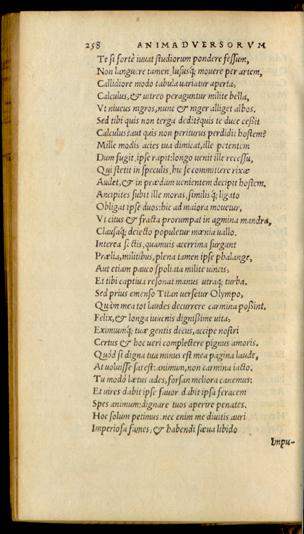 258 ANIMADVERSORVM
Te si fortè iuuat studiorum pondere fessum,
Non languere tamen, lususq; mouere per artem,
Callidiore modo tabula uariatur aperta,
Calculus, & uitreo peraguntur milite bella,
Vt niueus nigros, nunc & niger alliget albos.
Sed tibi quis non terga dedit? quis te duce cessit
Calculus? aut quis non periturus perdidit hostem?
Mille modis acies tua dimicat, ille petentem
Dum fugit, ipse rapit: longo uenit ille recessu,
Qui stetit in speculis, hic se committere rixæ
Audet, & in prædam uenientem decipit hostem.
Ancipites subit ille moras, similisq; ligato
Obligat ipse duos: hic ad maiora mouetur,
Vt citus & fracta prorumpat in agmina mandra,
Clausaq; deiecto populetur mœnia uallo.
Interea sectis, quamuis acerrima surgant
Prælia, militibus, plena tamen ipse phalange,
Aut etiam pauco spoliata milite uincis,
Et tibi captiua resonat manus utraq; turba.
Sed prius emenso Titan uersetur Olympo,
Quàm mea tot laudes decurrere carmina poßint.
Felix, & longa iuuenis dignißime uita,
Eximiumq; tuæ gentis decus, accipe nostri
Certus & hoc ueri complectere pignus amoris.
Quòd si digna tua minus est mea pagina laude,
At uoluisse sat est: animum, non carmina iacto.
Tu modò lætus ades, forsan meliora canemus:
Et uires dabit ipse fauor dabit ipsa feracem
Spes animum: dignare tuos aperire penates.
Hoc solum petimus. nec enim me diuitis auri
Imperiosa fames, & habendi sæua libido
Impu-